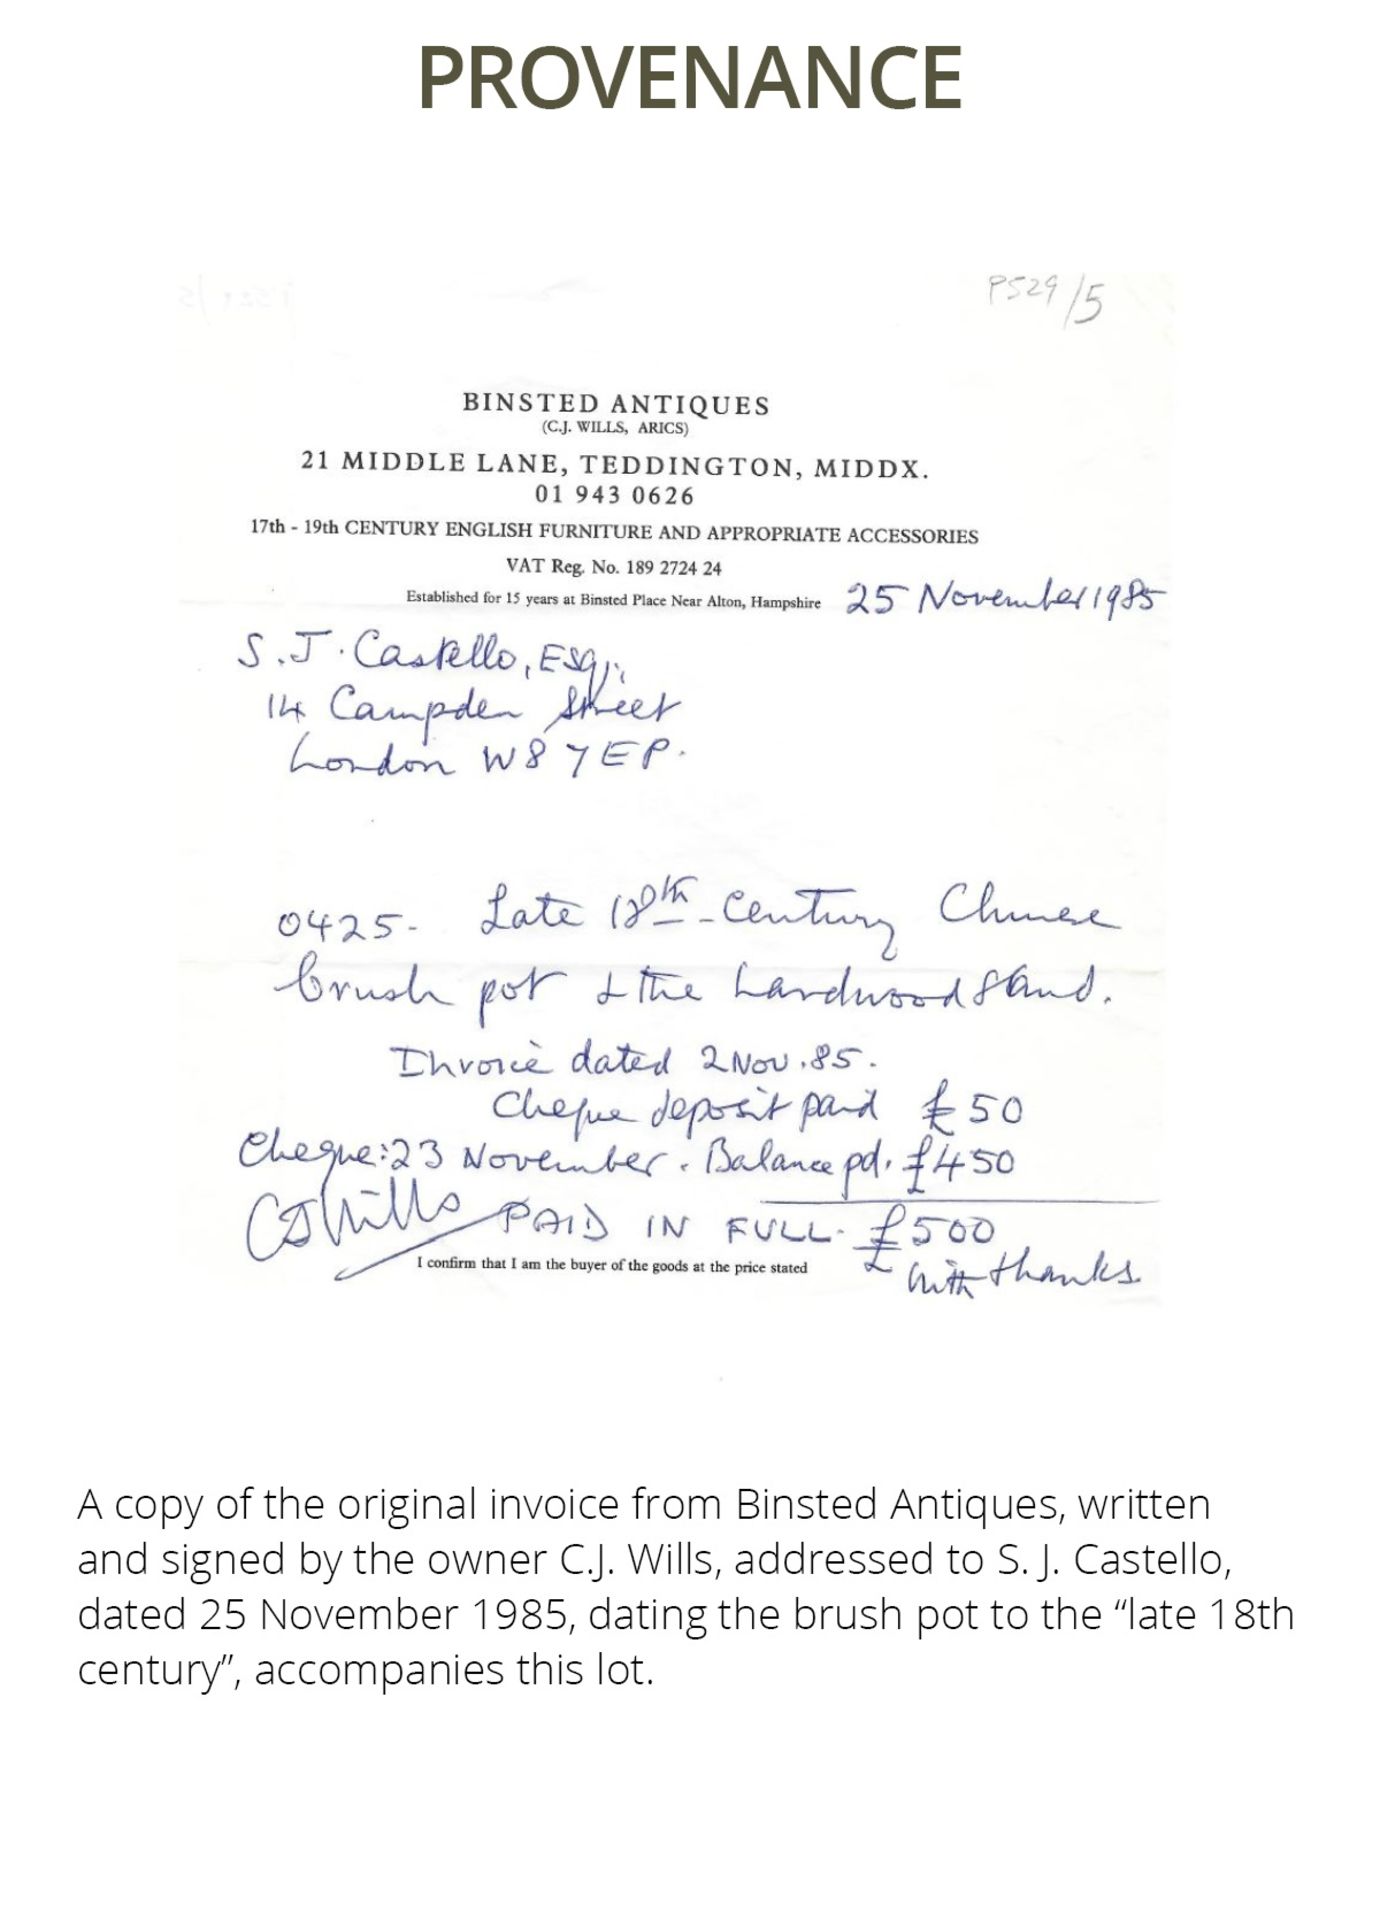 PROVENANCE
P529/5
BINSTED ANTIQUES
(C.J. WILLS, ARICS)
21 MIDDLE LANE, TEDDINGTON, MIDDX.
01 943 0626
17th - 19th CENTURY ENGLISH FURNITURE AND APPROPRIATE ACCESSORIES
VAT Reg. No. 189 2724 24
Established for 15 years at Binsted Place Near Alton, Hampshire 25 November 1985
S.J. Castello, Esq.,
14 Campden Street
London W8 7EP.
0425- Late 18th-Century Chinese
brush pot & the hardwood stand.
Invoice dated 2 Nov. 85.
Cheque deposit paid £50
Cheque: 23 November. Balance pd. £450
CJ Wills PAID IN FULL. £500
I confirm that I am the buyer of the goods at the price stated
With thanks
A copy of the original invoice from Binsted Antiques, written
and signed by the owner C.J. Wills, addressed to S. J. Castello,
dated 25 November 1985, dating the brush pot to the “late 18th
century”, accompanies this lot.